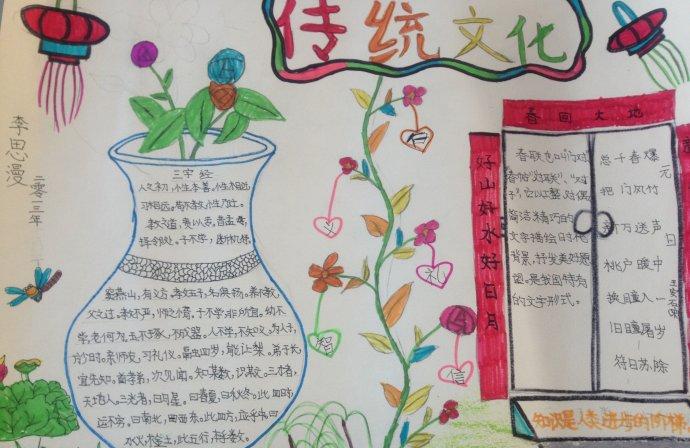 传统文化
李思漫
二零一三年
三字经
人之初,性本善。性相近,
习相远。苟不教,性乃迁。
教之道,贵以专。昔孟母,
择邻处。子不学,断机杼。
窦燕山,有义方。教五子,名俱扬。养不教,
父之过。教不严,师之惰。子不学,非所宜。幼不
学,老何为。玉不琢,不成器。人不学,不知义。为人子,
方少时。亲师友,习礼仪。融四岁,能让梨。弟于长,
宜先知。首孝弟,次见闻。知某数,识某文。三才者,
天地人。三光者,日月星。曰春夏,曰秋冬。此四时,
运不穷。曰南北,曰西东。此四方,应乎中。曰
水火,木金土。此五行,本乎数。
仁
义
礼
智
信
春回大地
好山好水好日月
春联也叫门对
春帖“对联”、“对
子”,它以工整、对偶
简洁、精巧的
文字描绘时代
背景,抒发美好愿
望。是我国特有
的文字形式。
元日
王安石
爆竹声中一岁除
春风送暖入屠苏
千门万户瞳瞳日
总把新桃换旧符
知识是人类进步的阶梯